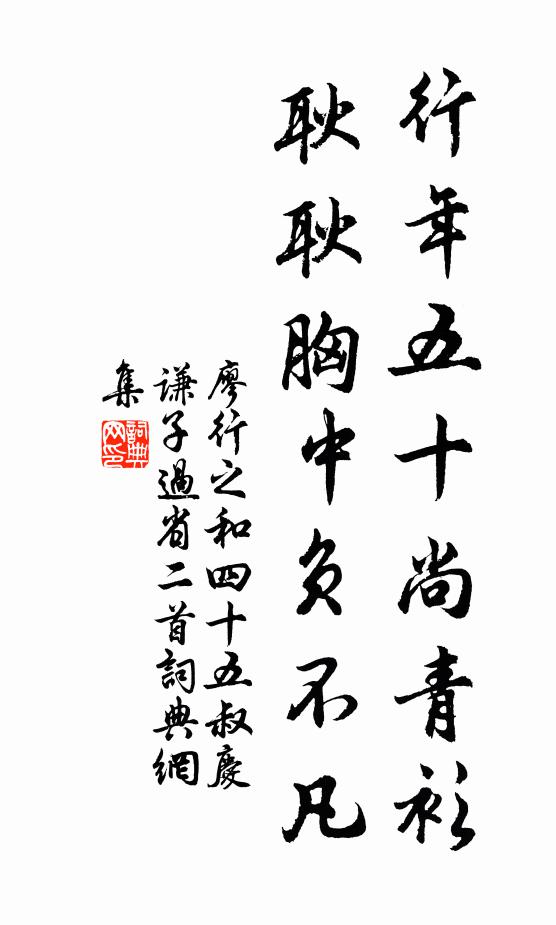 行年五十尚青衫
耿耿胸中负不凡
廖行之和四十五叔慶
谦子過省二首詞典網
集
詞典
网印